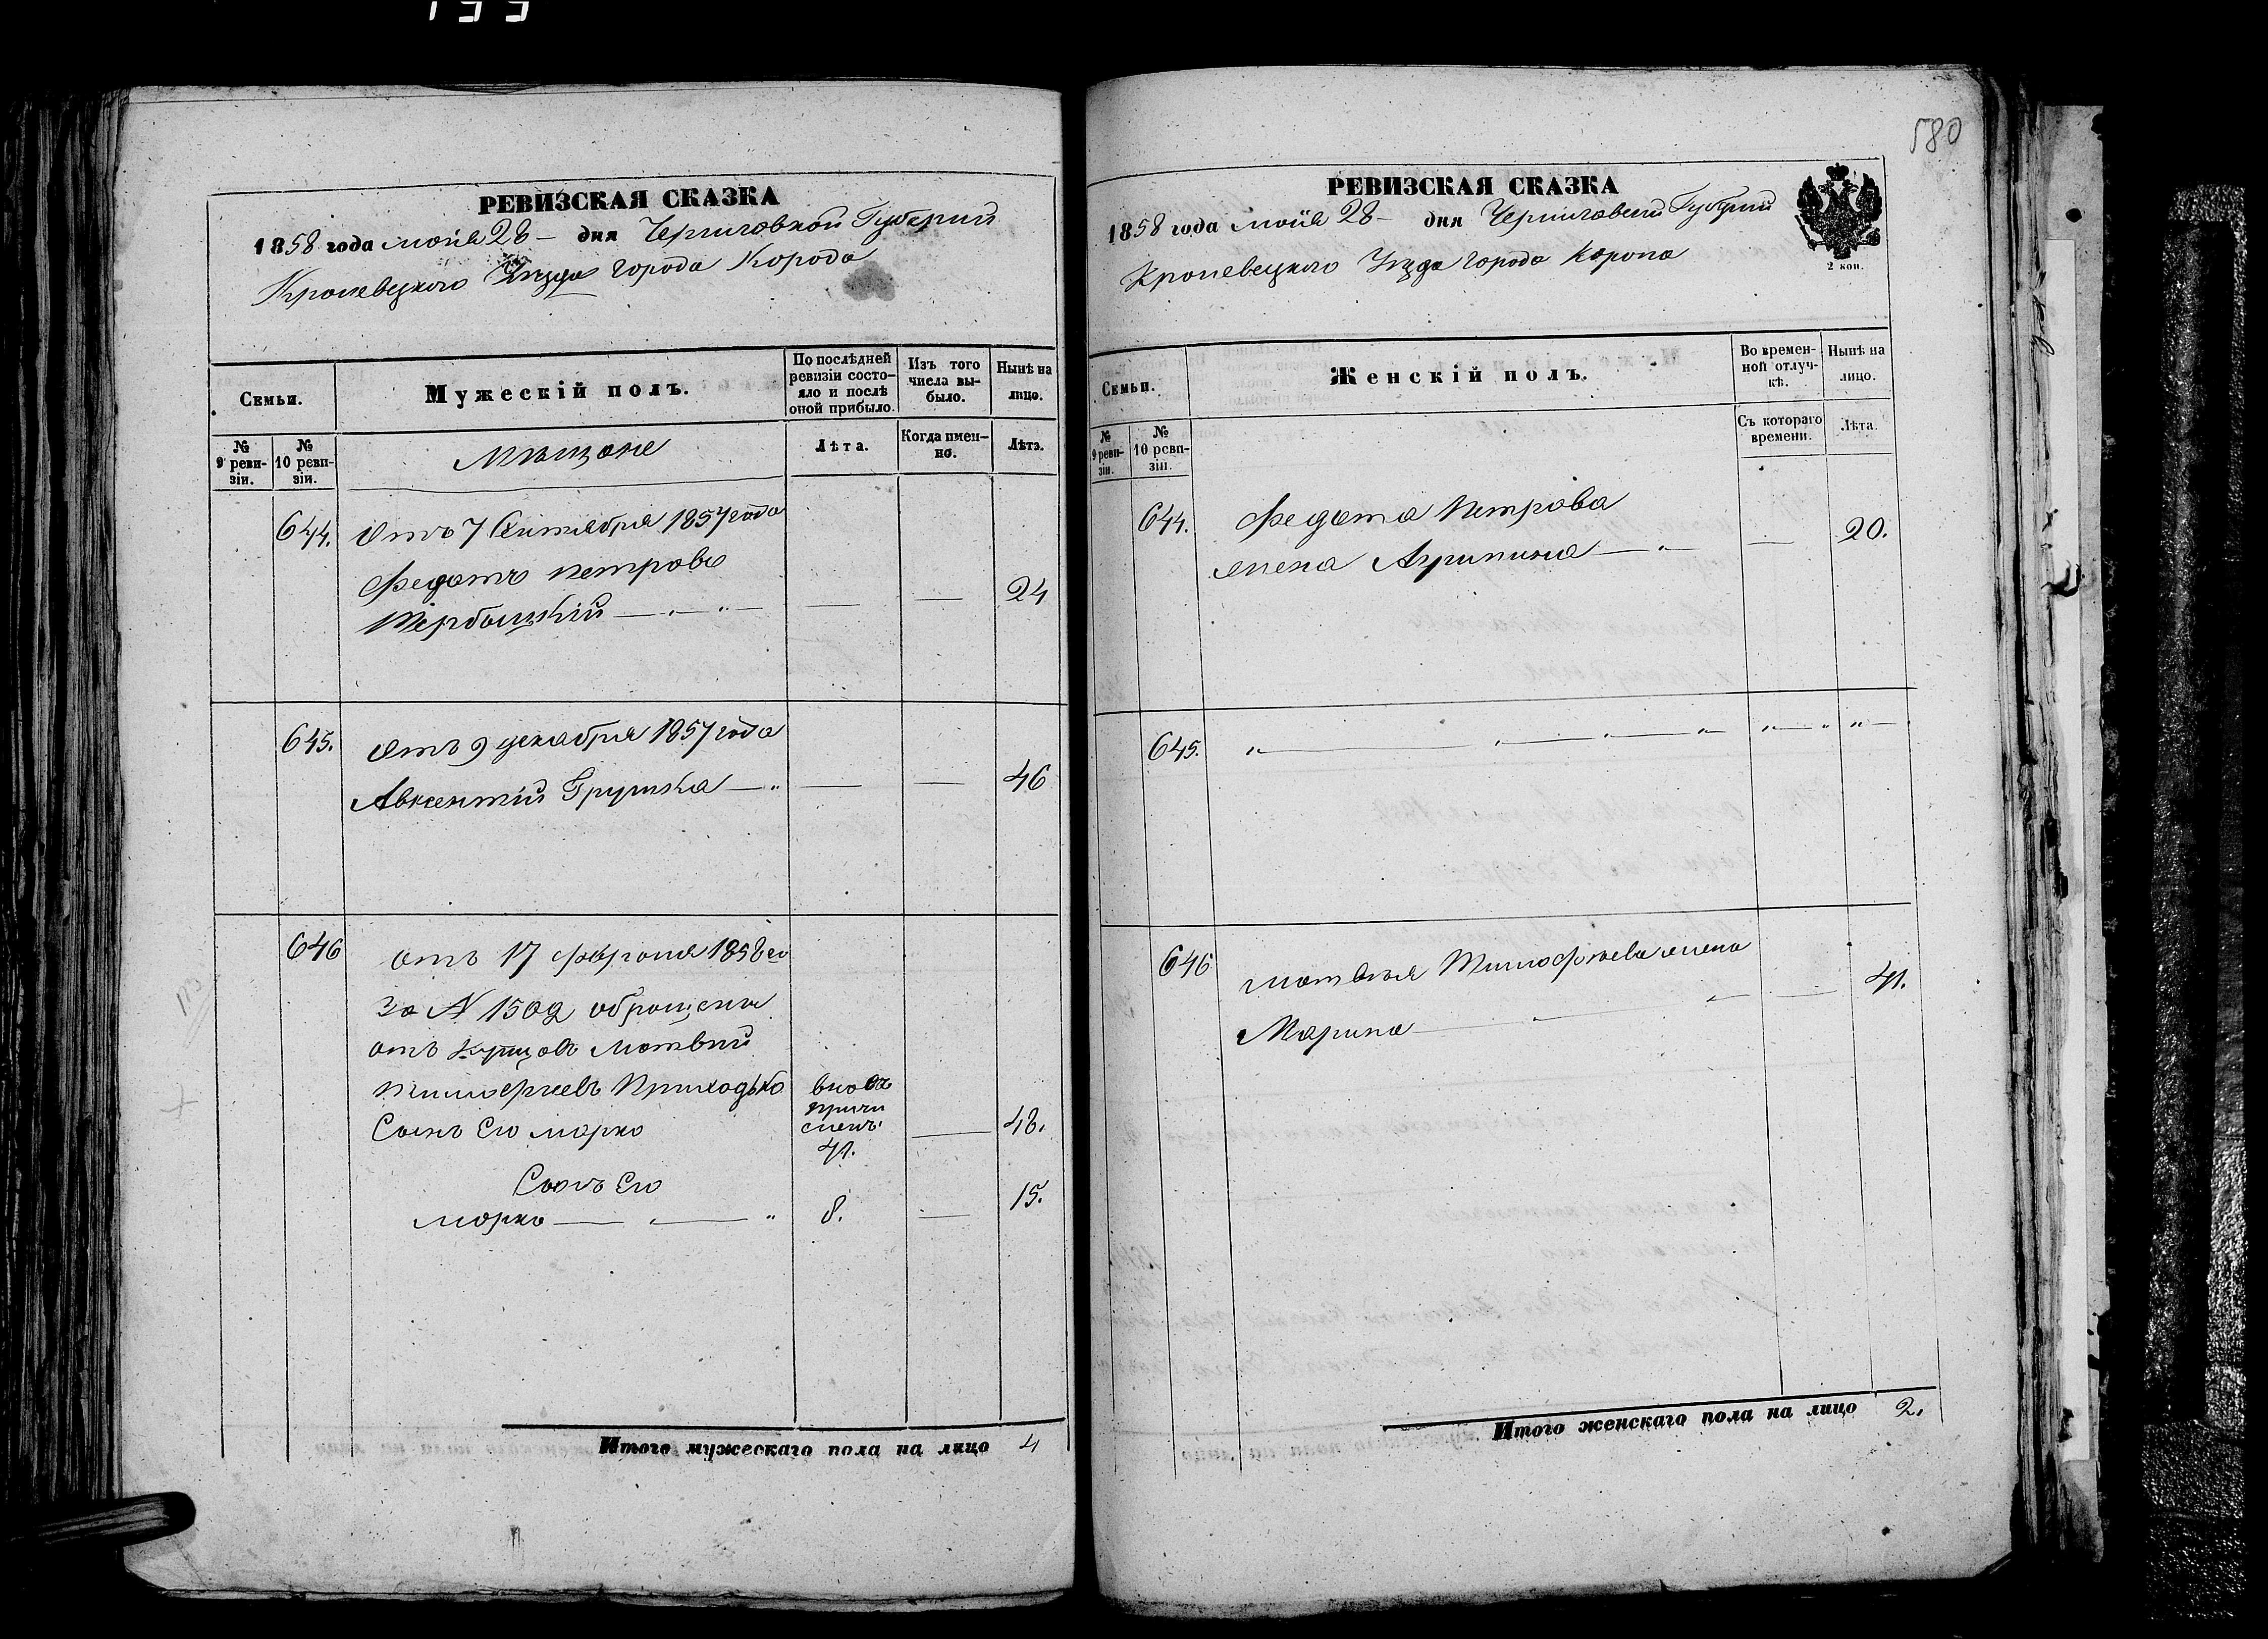 133
РЕВИЗСКАЯ СКАЗКА
1858 года маія 28 — дня Черниговской Губерніи
Кролевецкого Уезда города Коропа
Семьи.
Мужескій полъ.
По послѣдней ревизіи состояло и послѣ оной прибыло.
Изъ того числа выбыло.
Нынѣ на лицо.
№ 9 ревизіи.
№ 10 ревизіи.
Мѣщане
Лѣта.
Когда именно.
Лѣта.
644. Отъ 7 Сентября 1857 года
Федотъ Петровъ
— — 24
645. Отъ 9 декабря 1857 года
Авксентій Грушка — — — 46
646 отъ 17 февраля 1858 го
За N 1502 обращены
отъ Купцовъ Матвей
Тимофеевъ Приходько вновь
Сынъ Его Марко причисленъ. — 48.
41.
Сынъ Его
Марко — — " 8. — 15.
Итого мужескаго пола на лицо 4
580
РЕВИЗСКАЯ СКАЗКА
1858 года маія 28 — дня Черниговской Губерніи
Кролевецкого Уезда города Коропа
2 коп.
Семьи.
Женскій полъ.
Во временной отлучкѣ.
Нынѣ на лицо.
№ 9 ревизіи.
№ 10 ревизіи.
Съ котораго времени.
Лѣта.
644. Федота Петрова
жена Агрипина — " — — 20.
645. " — " — " — " " — " " —
646 Матвея Тимофеева жена
Марина — — 41.
Итого женскаго пола на лицо 2.